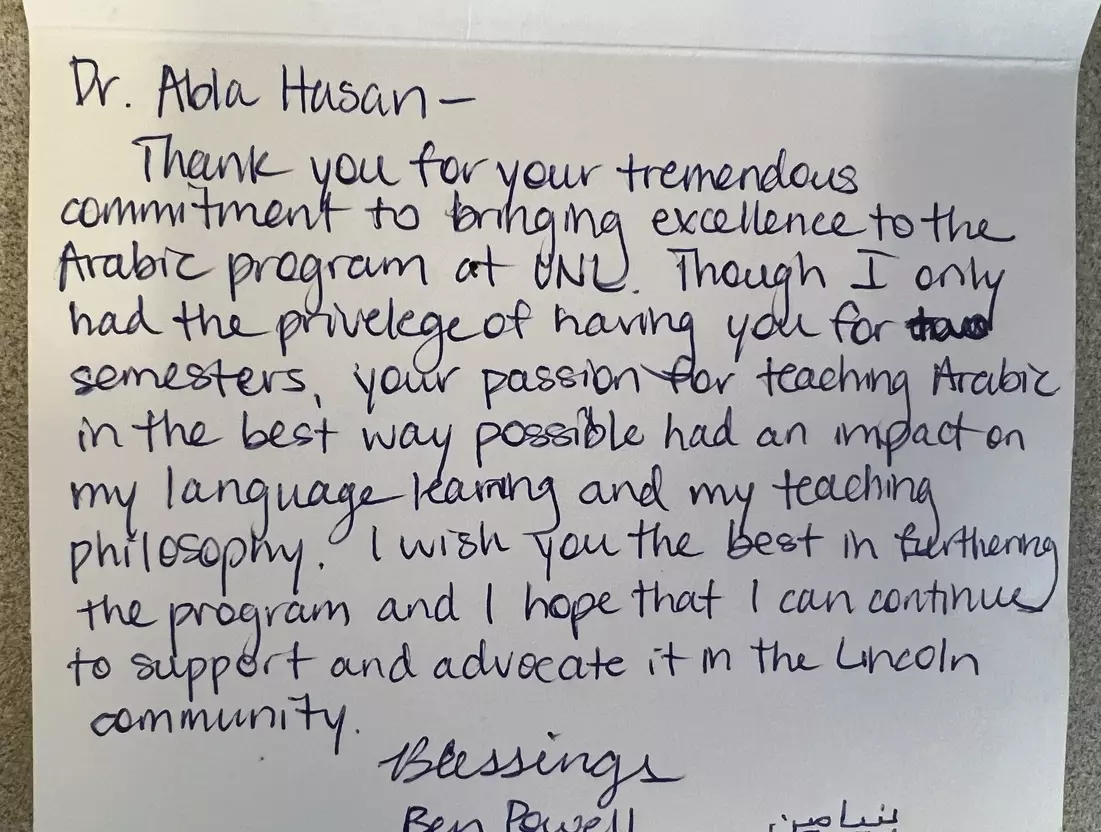 Dr. Abla Hasan –
Thank you for your tremendous
commitment to bringing excellence to the
Arabic program at UNL. Though I only
had the privelege of having you for two
semesters, your passion for teaching Arabic
in the best way possible had an impact on
my language learning and my teaching
philosophy. I wish you the best in furthering
the program and I hope that I can continue
to support and advocate it in the Lincoln
community.
Blessings
Ben Powell بنيامين